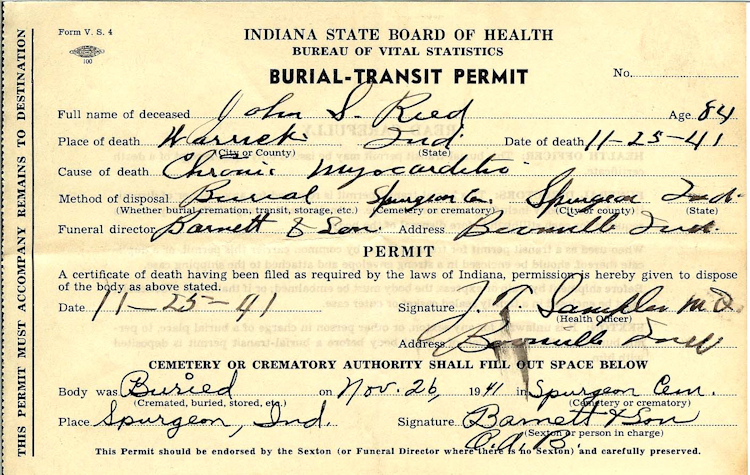 Form V. S. 4
100
INDIANA STATE BOARD OF HEALTH
BUREAU OF VITAL STATISTICS
BURIAL-TRANSIT PERMIT
No.
Full name of deceased John S. Ried Age 84
Place of death Warrick Ind Date of death 11-25-41
(City or County) (State)
Cause of death Chronic Myocarditis
Method of disposal Burial Spurgeon Cem. Spurgeon Ind.
(Whether burial, cremation, transit, storage, etc.) (Cemetery or crematory) (City or county) (State)
Funeral director Barnett & Son Address Boonville Ind.
PERMIT
A certificate of death having been filed as required by the laws of Indiana, permission is hereby given to dispose
of the body as above stated.
Date 11-25-41 Signature J. T. Samples M.D.
(Health Officer)
Address Boonville Ind
CEMETERY OR CREMATORY AUTHORITY SHALL FILL OUT SPACE BELOW
Body was Buried on Nov. 26, 1941 in Spurgeon Cem.
(Cremated, buried, stored, etc.) (Cemetery or crematory)
Place Spurgeon, Ind. Signature Barnett & Son
(Sexton or person in charge)
This Permit should be endorsed by the Sexton (or Funeral Director where there is no Sexton) and carefully preserved.
THIS PERMIT MUST ACCOMPANY REMAINS TO DESTINATION